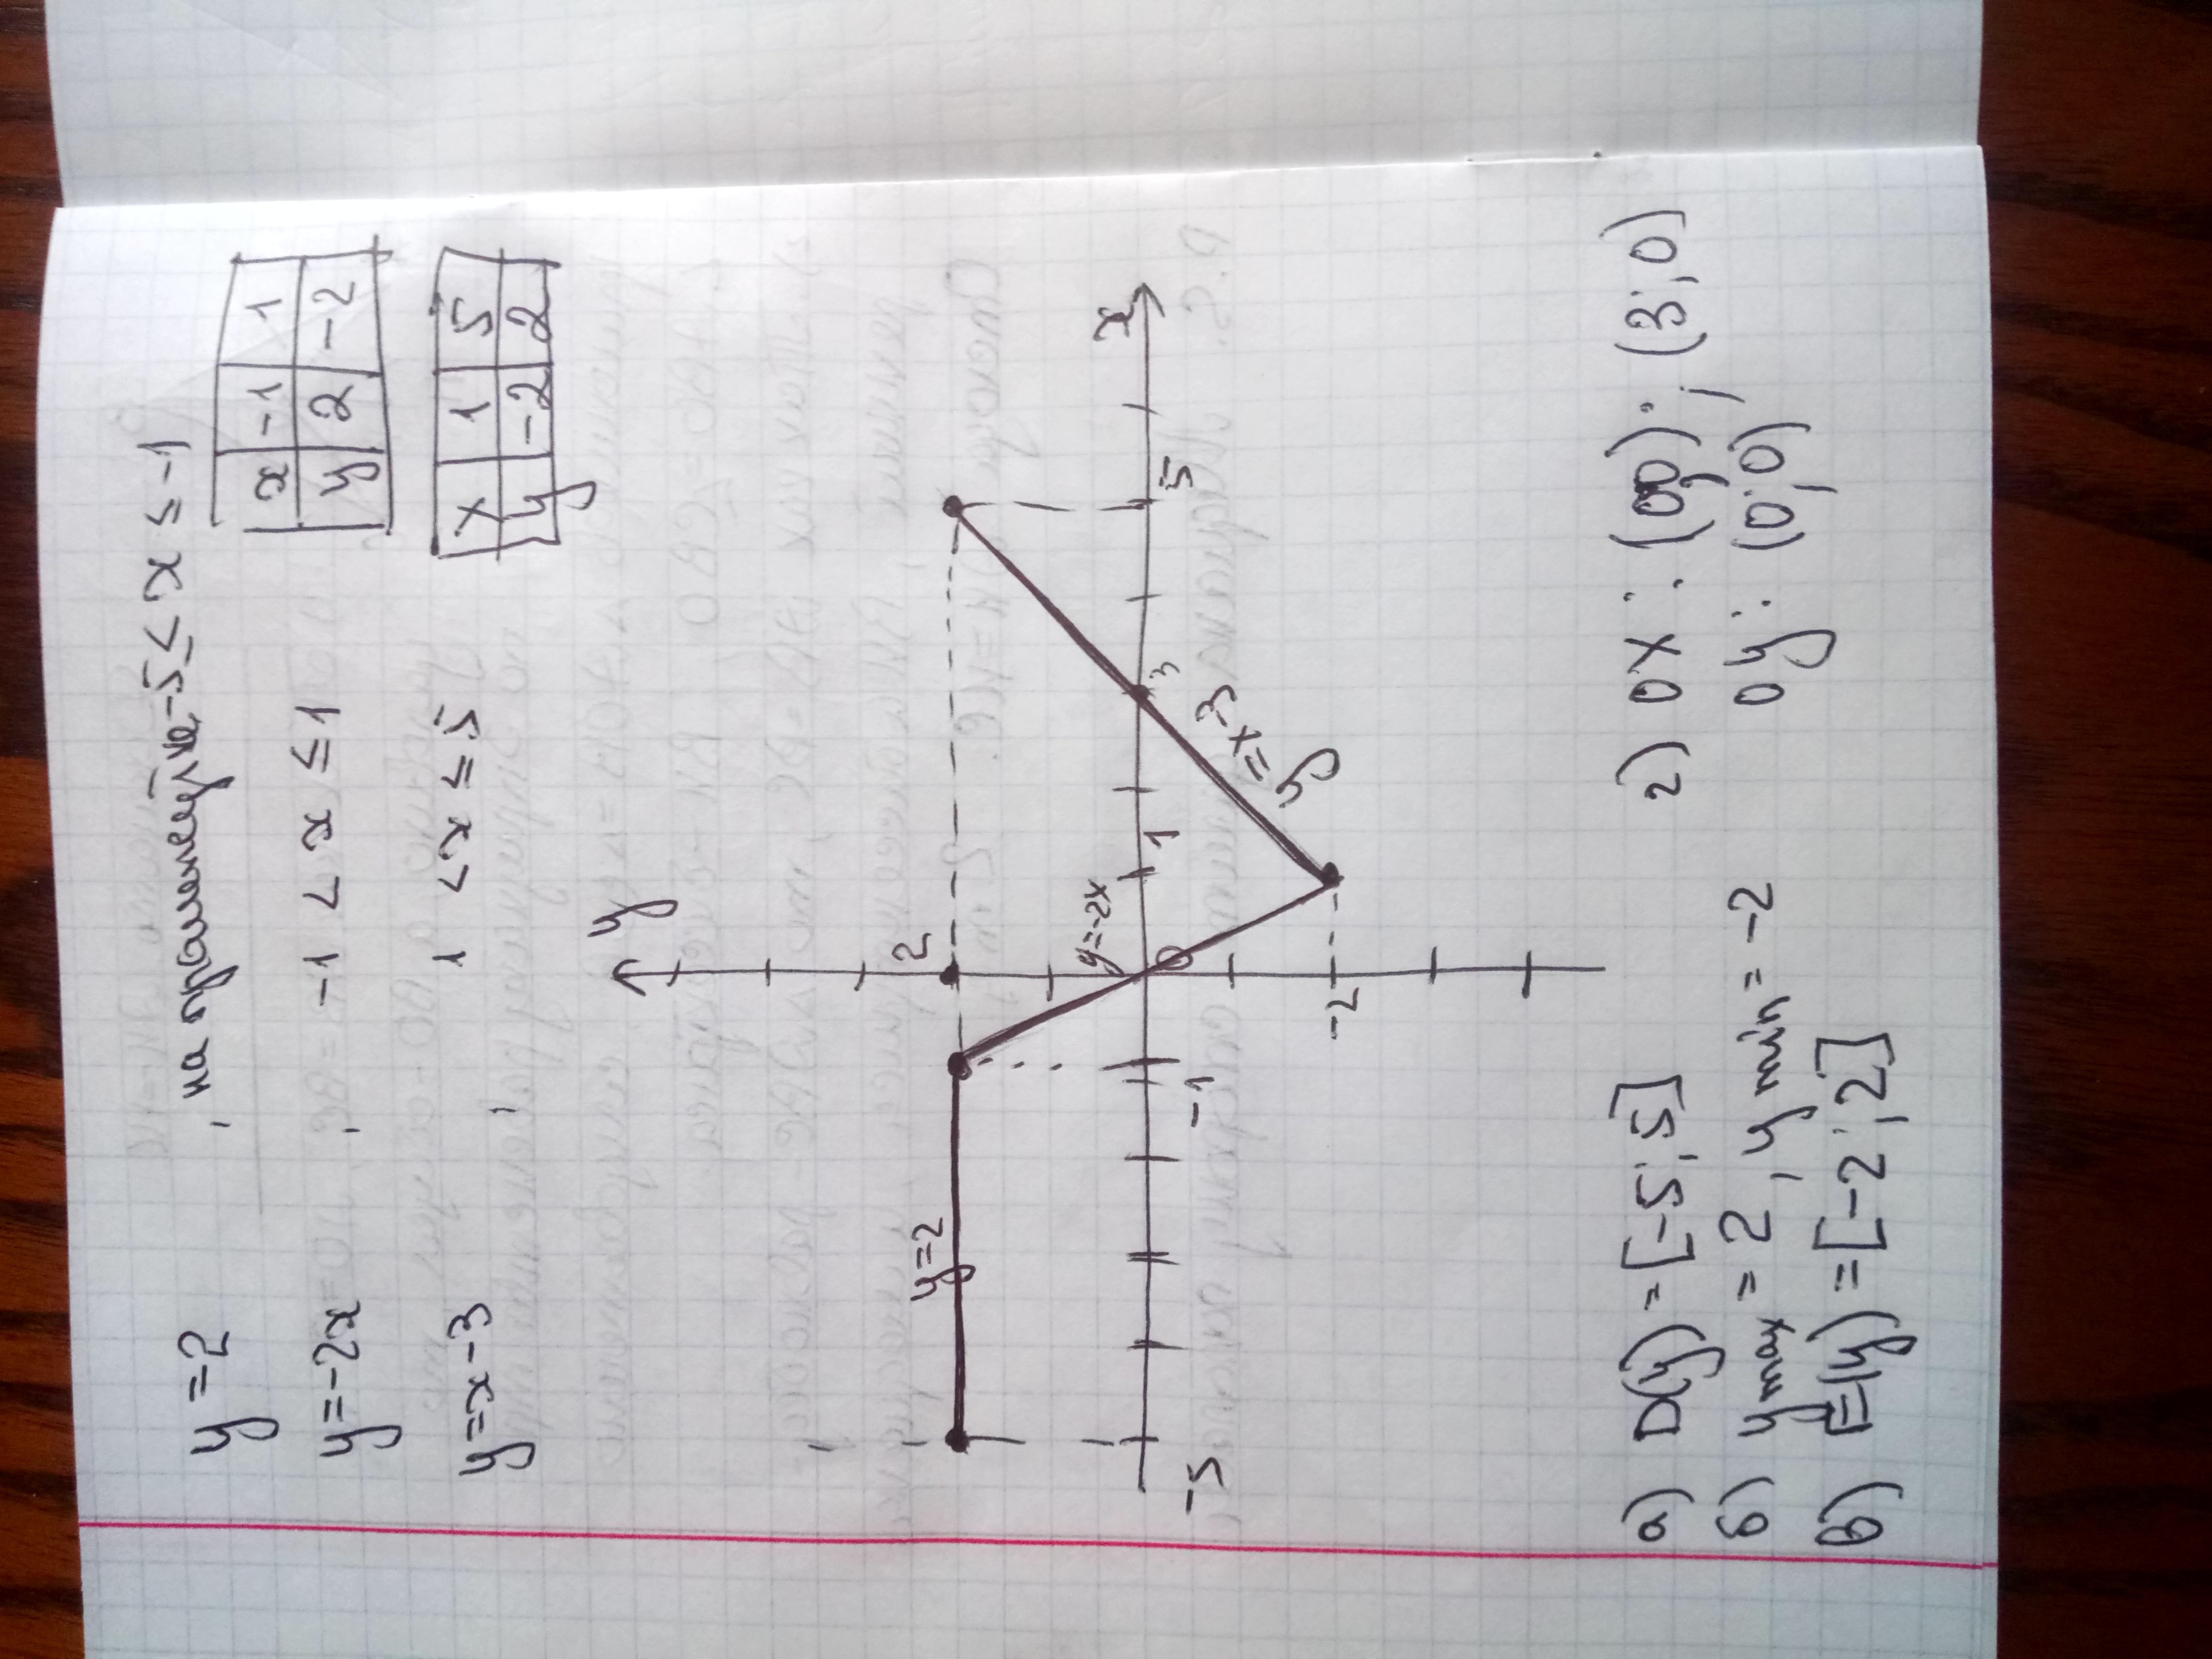 y=2 , на промежутке -5≤x≤-1
y=-2x , -1<x≤1
x -1 1
y 2 -2
y=x-3 , 1<x≤5
x 1 5
y -2 2
y
2
x
y=2
y=-2x
-5
-1
0
1
3
5
y=x-3
-2
а) D(y)=[-5;5]
б) y max=2, y min=-2
в) E(y)=[-2;2]
г) 0x: (0;0); (3;0)
0y: (0;0)